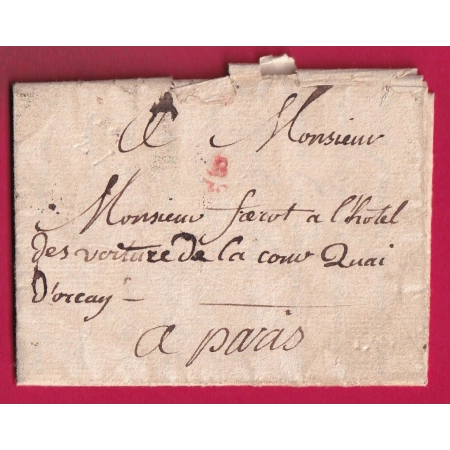 A Monsieur
Monsieur frerot a l'hotel
des voiture de la cour Quai
D'orcay
a paris